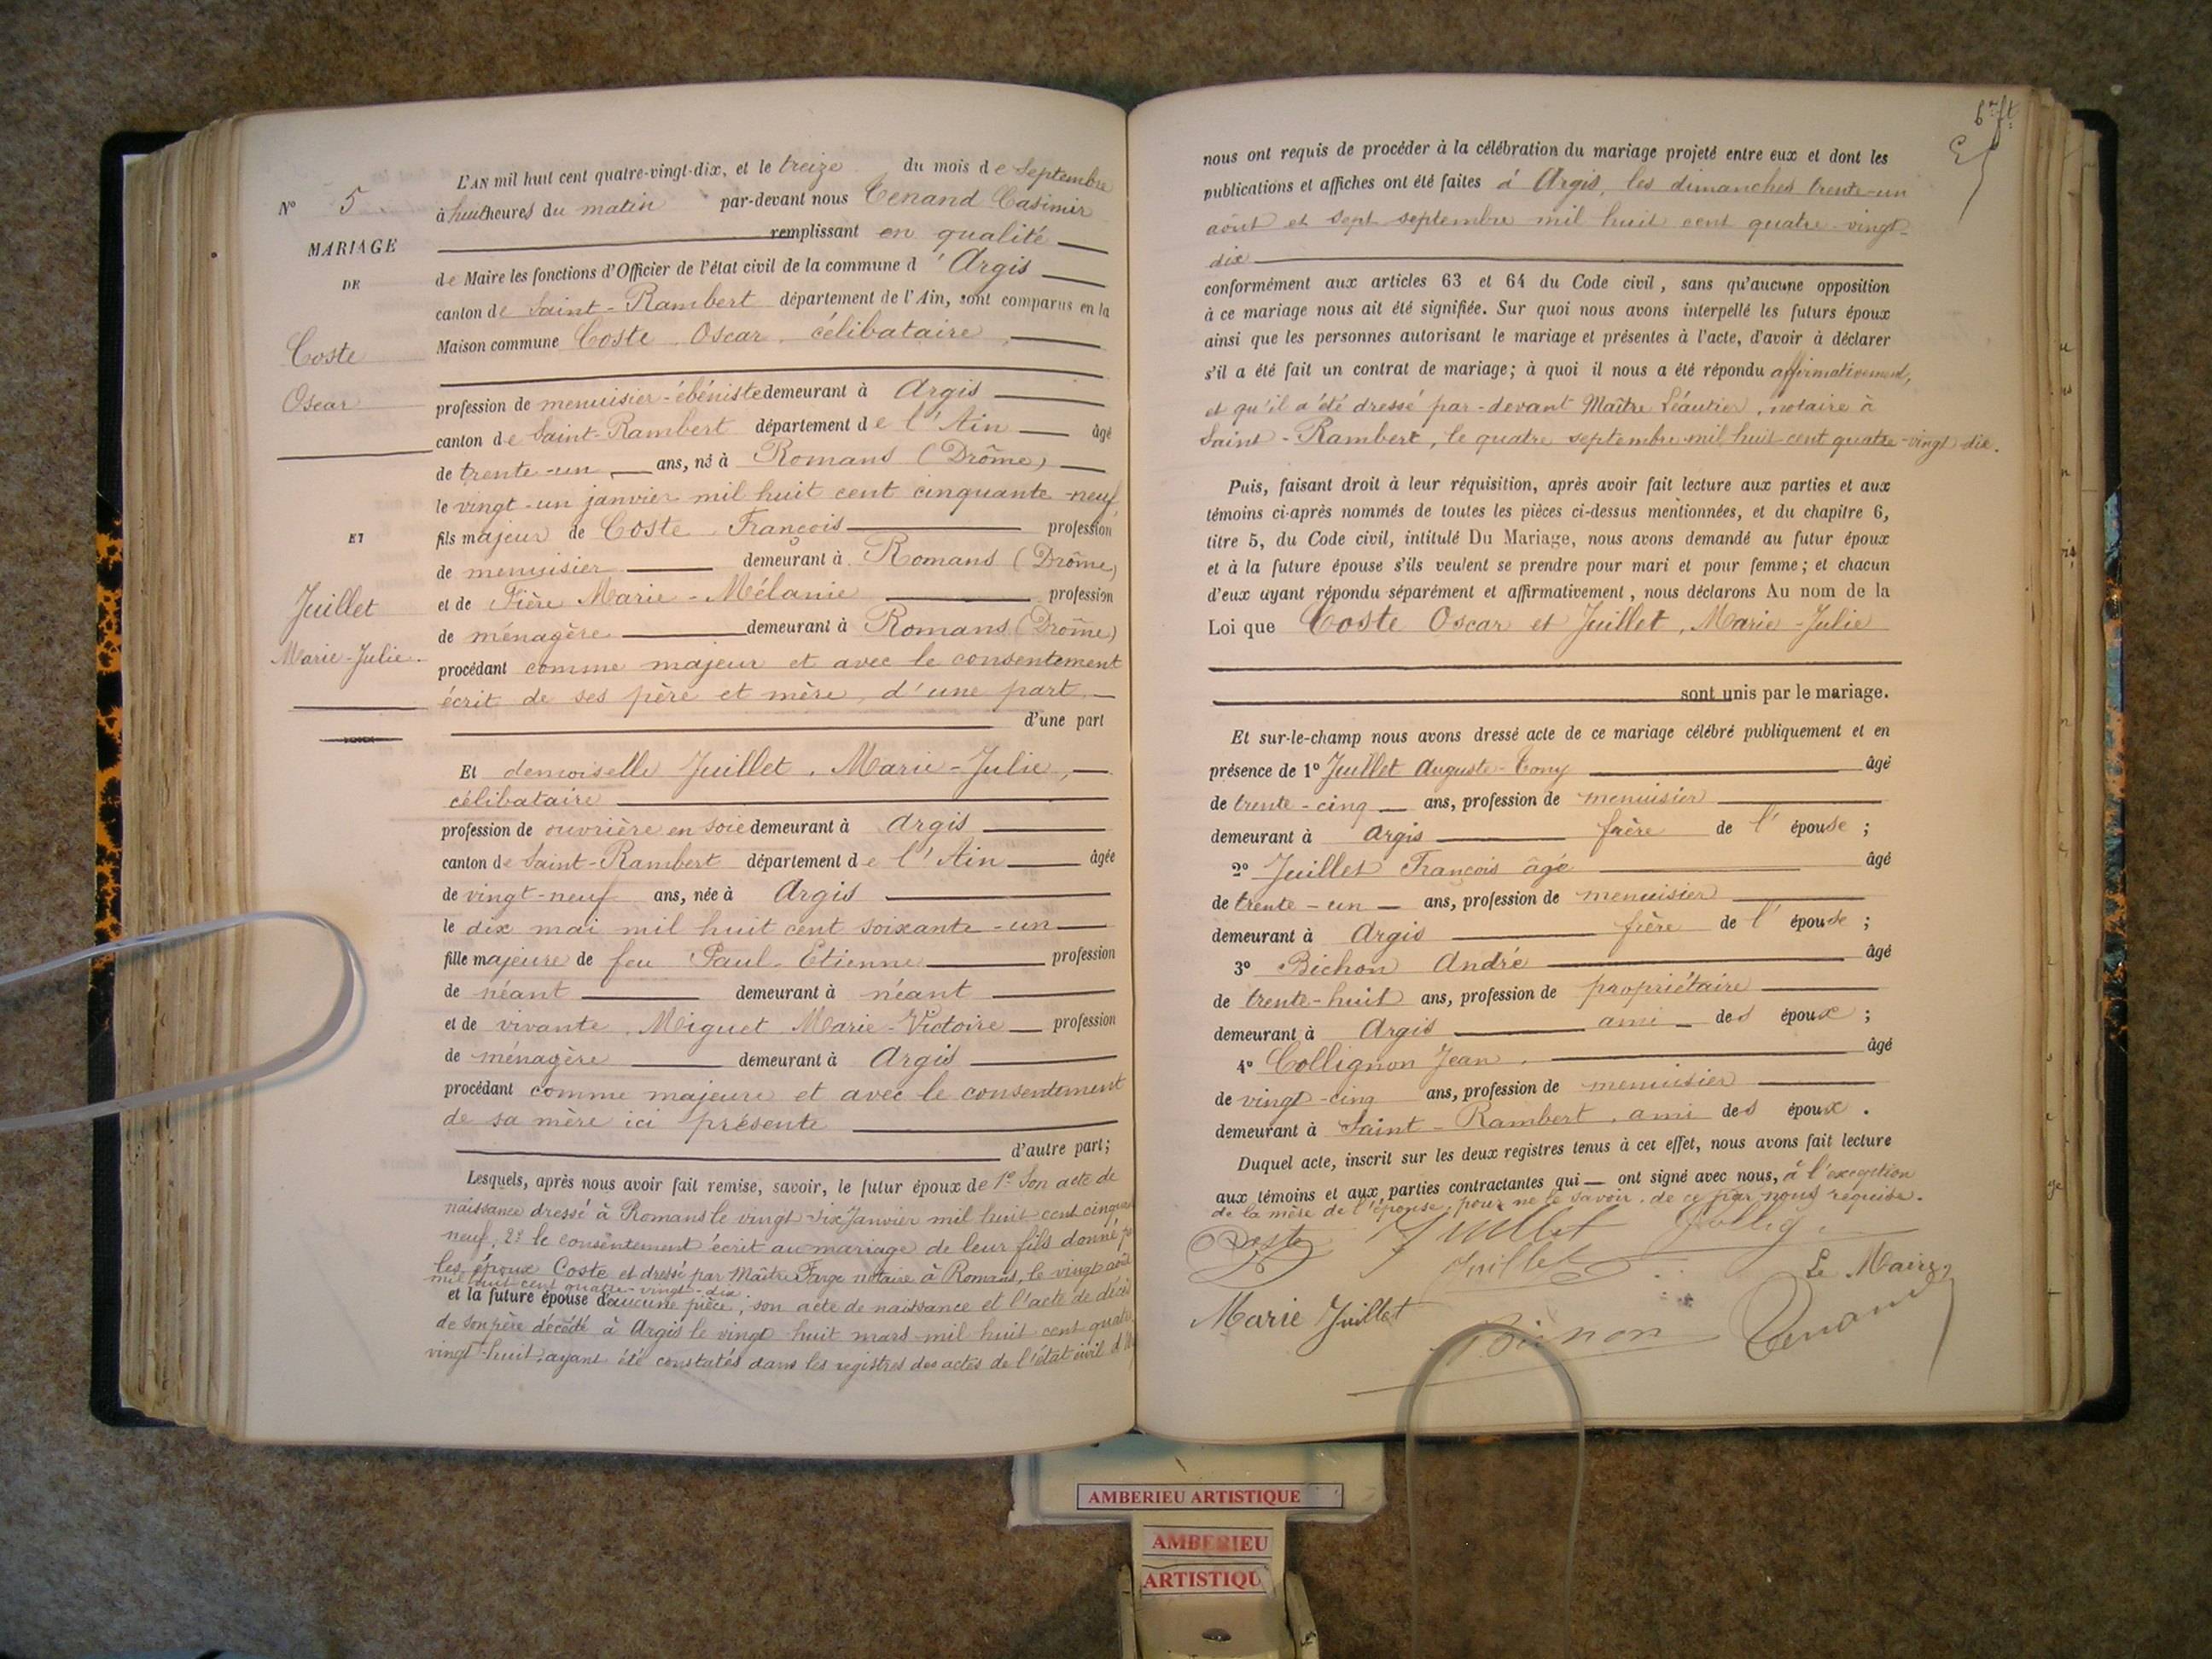 L'AN mil huit cent quatre-vingt-dix, et le treize du mois de Septembre
N° 5 à huit heures du matin par-devant nous Tenand Casimir
remplissant en qualité
MARIAGE
de Maire les fonctions d'Officier de l'état civil de la commune d'Argis
DE
canton de Saint-Rambert département de l'Ain, sont comparus en la
Coste
Maison commune Coste Oscar, célibataire
Oscar
profession de menuisier-ébéniste demeurant à Argis
canton de Saint-Rambert département de l'Ain âgé
de trente-un ans, né à Romans (Drôme)
le vingt-un janvier mil huit cent cinquante-neuf,
ET
fils majeur de Coste François profession
de menuisier demeurant à Romans (Drôme)
Juillet
et de Fière Marie-Mélanie profession
de ménagère demeurant à Romans (Drôme)
Marie-Julie.
procédant comme majeur et avec le consentement
écrit de ses père et mère, d'une part
d'une part
Et demoiselle Juillet, Marie-Julie,
célibataire
profession de ouvrière en soie demeurant à Argis
canton de Saint-Rambert département de l'Ain âgée
de vingt-neuf ans, née à Argis
le dix mai mil huit cent soixante-un
fille majeure de feu Paul Etienne profession
de néant demeurant à néant
et de vivante Miguet Marie-Victoire profession
de ménagère demeurant à Argis
procédant comme majeure et avec le consentement
de sa mère ici présente
d'autre part;
Lesquels, après nous avoir fait remise, savoir, le futur époux de 1° Son acte de
naissance dressé à Romans le vingt-six Janvier mil huit cent
neuf; 2° le consentement écrit au mariage de leur fils donné
les époux Coste et dressé par Maître Farge notaire à Romans, le vingt août
mil huit cent quatre-vingt-dix
et la future épouse d'aucune pièce; son acte de naissance et l'acte de décès
de son père décédé à Argis le vingt-huit mars mil huit cent quatre
vingt-huit, ayant été constatés dans les registres des actes de l'état civil
nous ont requis de procéder à la célébration du mariage projeté entre eux et dont les
publications et affiches ont été faites à Argis, les dimanches trente-un
août et sept septembre mil huit cent quatre-vingt-
dix
conformément aux articles 63 et 64 du Code civil, sans qu'aucune opposition
à ce mariage nous ait été signifiée. Sur quoi nous avons interpellé les futurs époux
ainsi que les personnes autorisant le mariage et présentes à l'acte, d'avoir à déclarer
s'il a été fait un contrat de mariage; à quoi il nous a été répondu affirmativement,
et qu'il a été dressé par-devant Maître Léautier, notaire à
Saint-Rambert, le quatre septembre mil huit cent quatre-vingt-dix.
Puis, faisant droit à leur réquisition, après avoir fait lecture aux parties et aux
témoins ci-après nommés de toutes les pièces ci-dessus mentionnées, et du chapitre 6,
titre 5, du Code civil, intitulé Du Mariage, nous avons demandé au futur époux
et à la future épouse s'ils veulent se prendre pour mari et pour femme; et chacun
d'eux ayant répondu séparément et affirmativement, nous déclarons Au nom de la
Loi que Coste Oscar et Juillet, Marie-Julie
sont unis par le mariage.
Et sur-le-champ nous avons dressé acte de ce mariage célébré publiquement et en
présence de 1° Juillet Auguste-Tony âgé
de trente-cinq ans, profession de menuisier
demeurant à Argis frère de l'épouse;
2° Juillet François âgé âgé
de trente-un ans, profession de menuisier
demeurant à Argis frère de l'épouse;
3° Bichon André âgé
de trente-huit ans, profession de propriétaire
demeurant à Argis ami des époux;
4° Collignon Jean, âgé
de vingt-cinq ans, profession de menuisier
demeurant à Saint-Rambert, ami des époux.
Duquel acte, inscrit sur les deux registres tenus à cet effet, nous avons fait lecture
aux témoins et aux parties contractantes qui ont signé avec nous, à l'exception
de la mère de l'épouse, pour ne le savoir, de ce par nous requise.
Coste Juillet Collig
Juillet
Le Maire,
Marie Juillet
Bichon Tenand
AMBERIEU ARTISTIQUE
AMBERIEU
ARTISTIQU